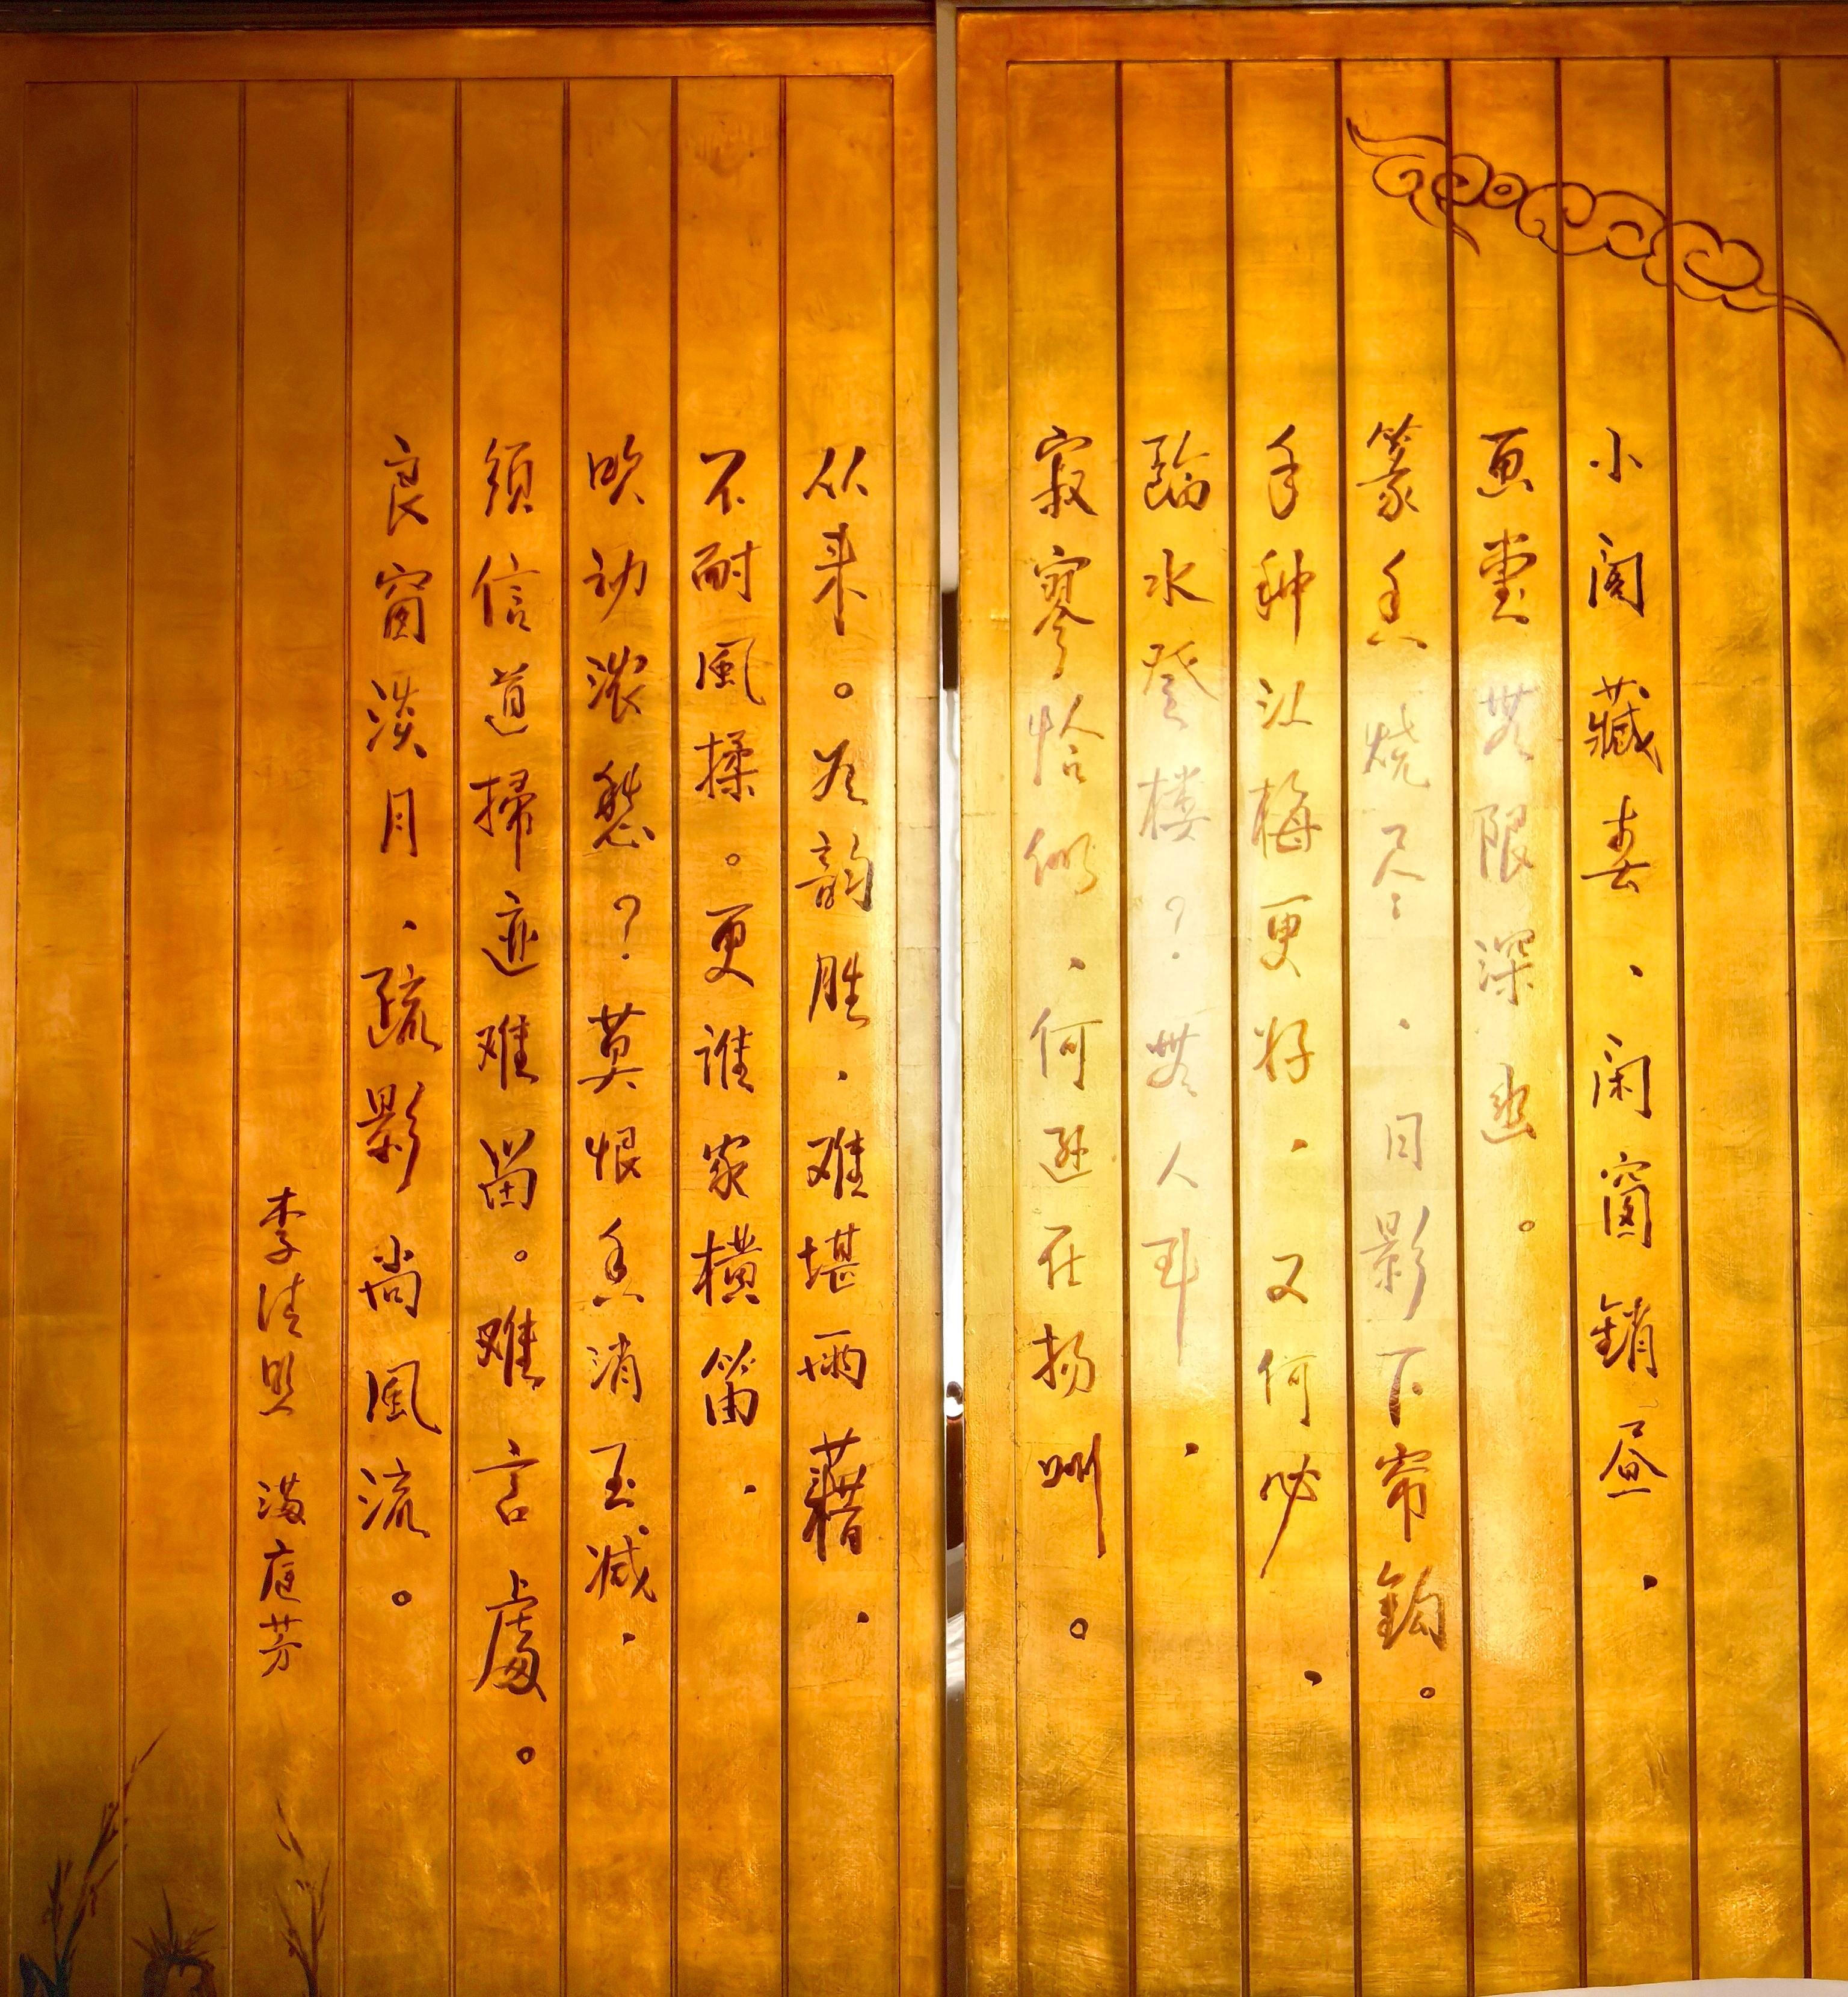 小阁藏春、闲窗銷昼、
画堂无限深幽。
篆香烧尽、日影下帘鈎。
手种江梅更好、又何必、
临水登楼？无人到、
寂寥恰似、何逊在扬州。
从来。如韵胜、难堪雨藉、
不耐風揉。更谁家横笛、
吹动浓愁？莫恨香消玉减、
须信道掃迹难留。难言處。
良窗淡月、疏影尚風流。
李清照 满庭芳